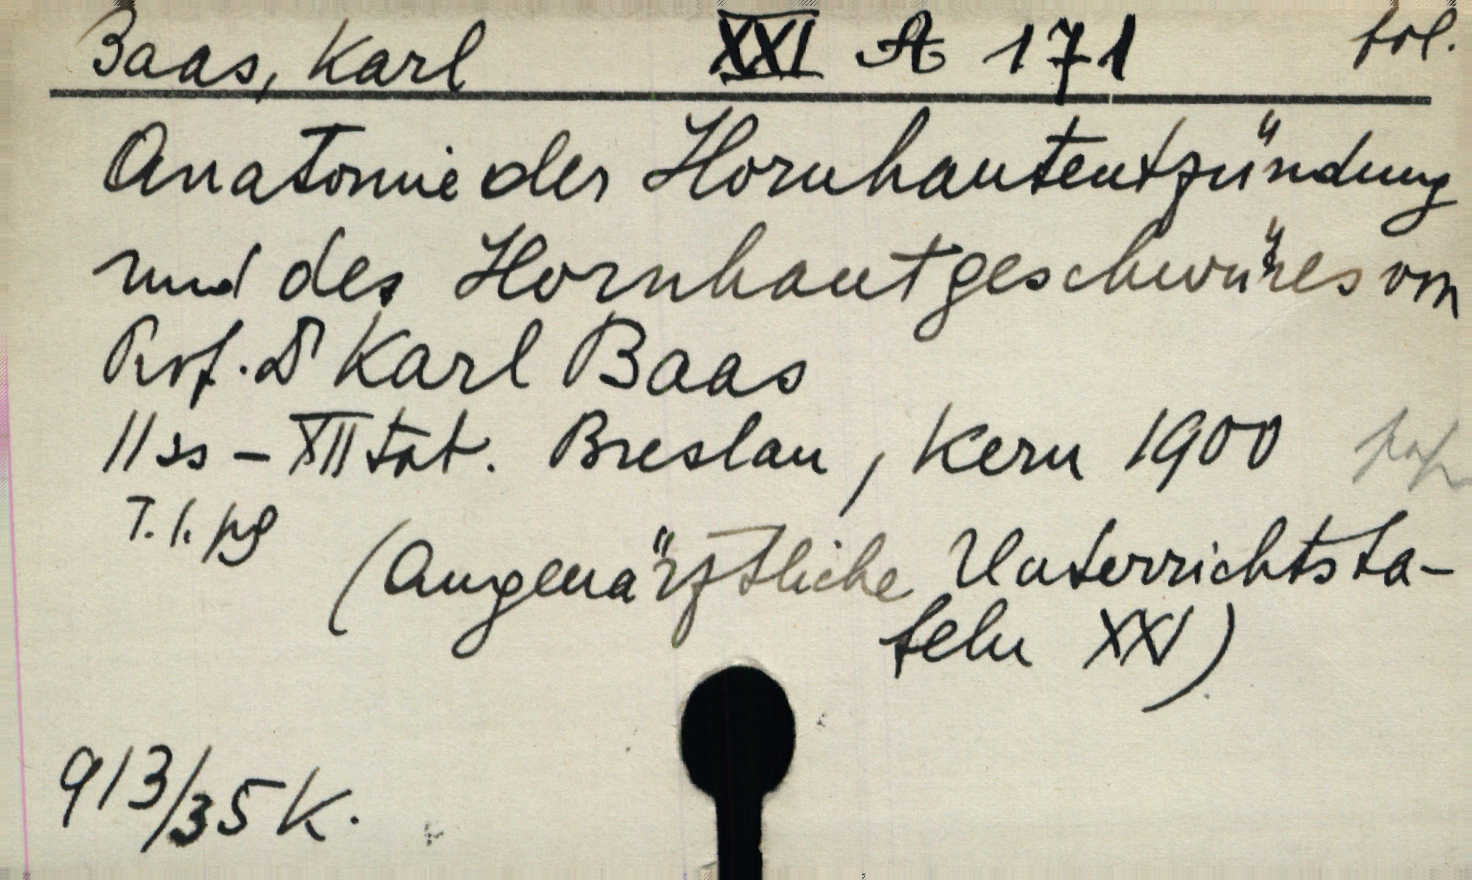 Baas, Karl XXI A 171 fol.
Anatomie der Hornhautentzündung
und des Hornhautgeschwüres von
Prof. Dr Karl Baas
II ss – XII tab. Breslau, Kern 1900
T. 1. pg
(Augenärztliche Unterrichtsta-
feln XXI)
913/35 K.